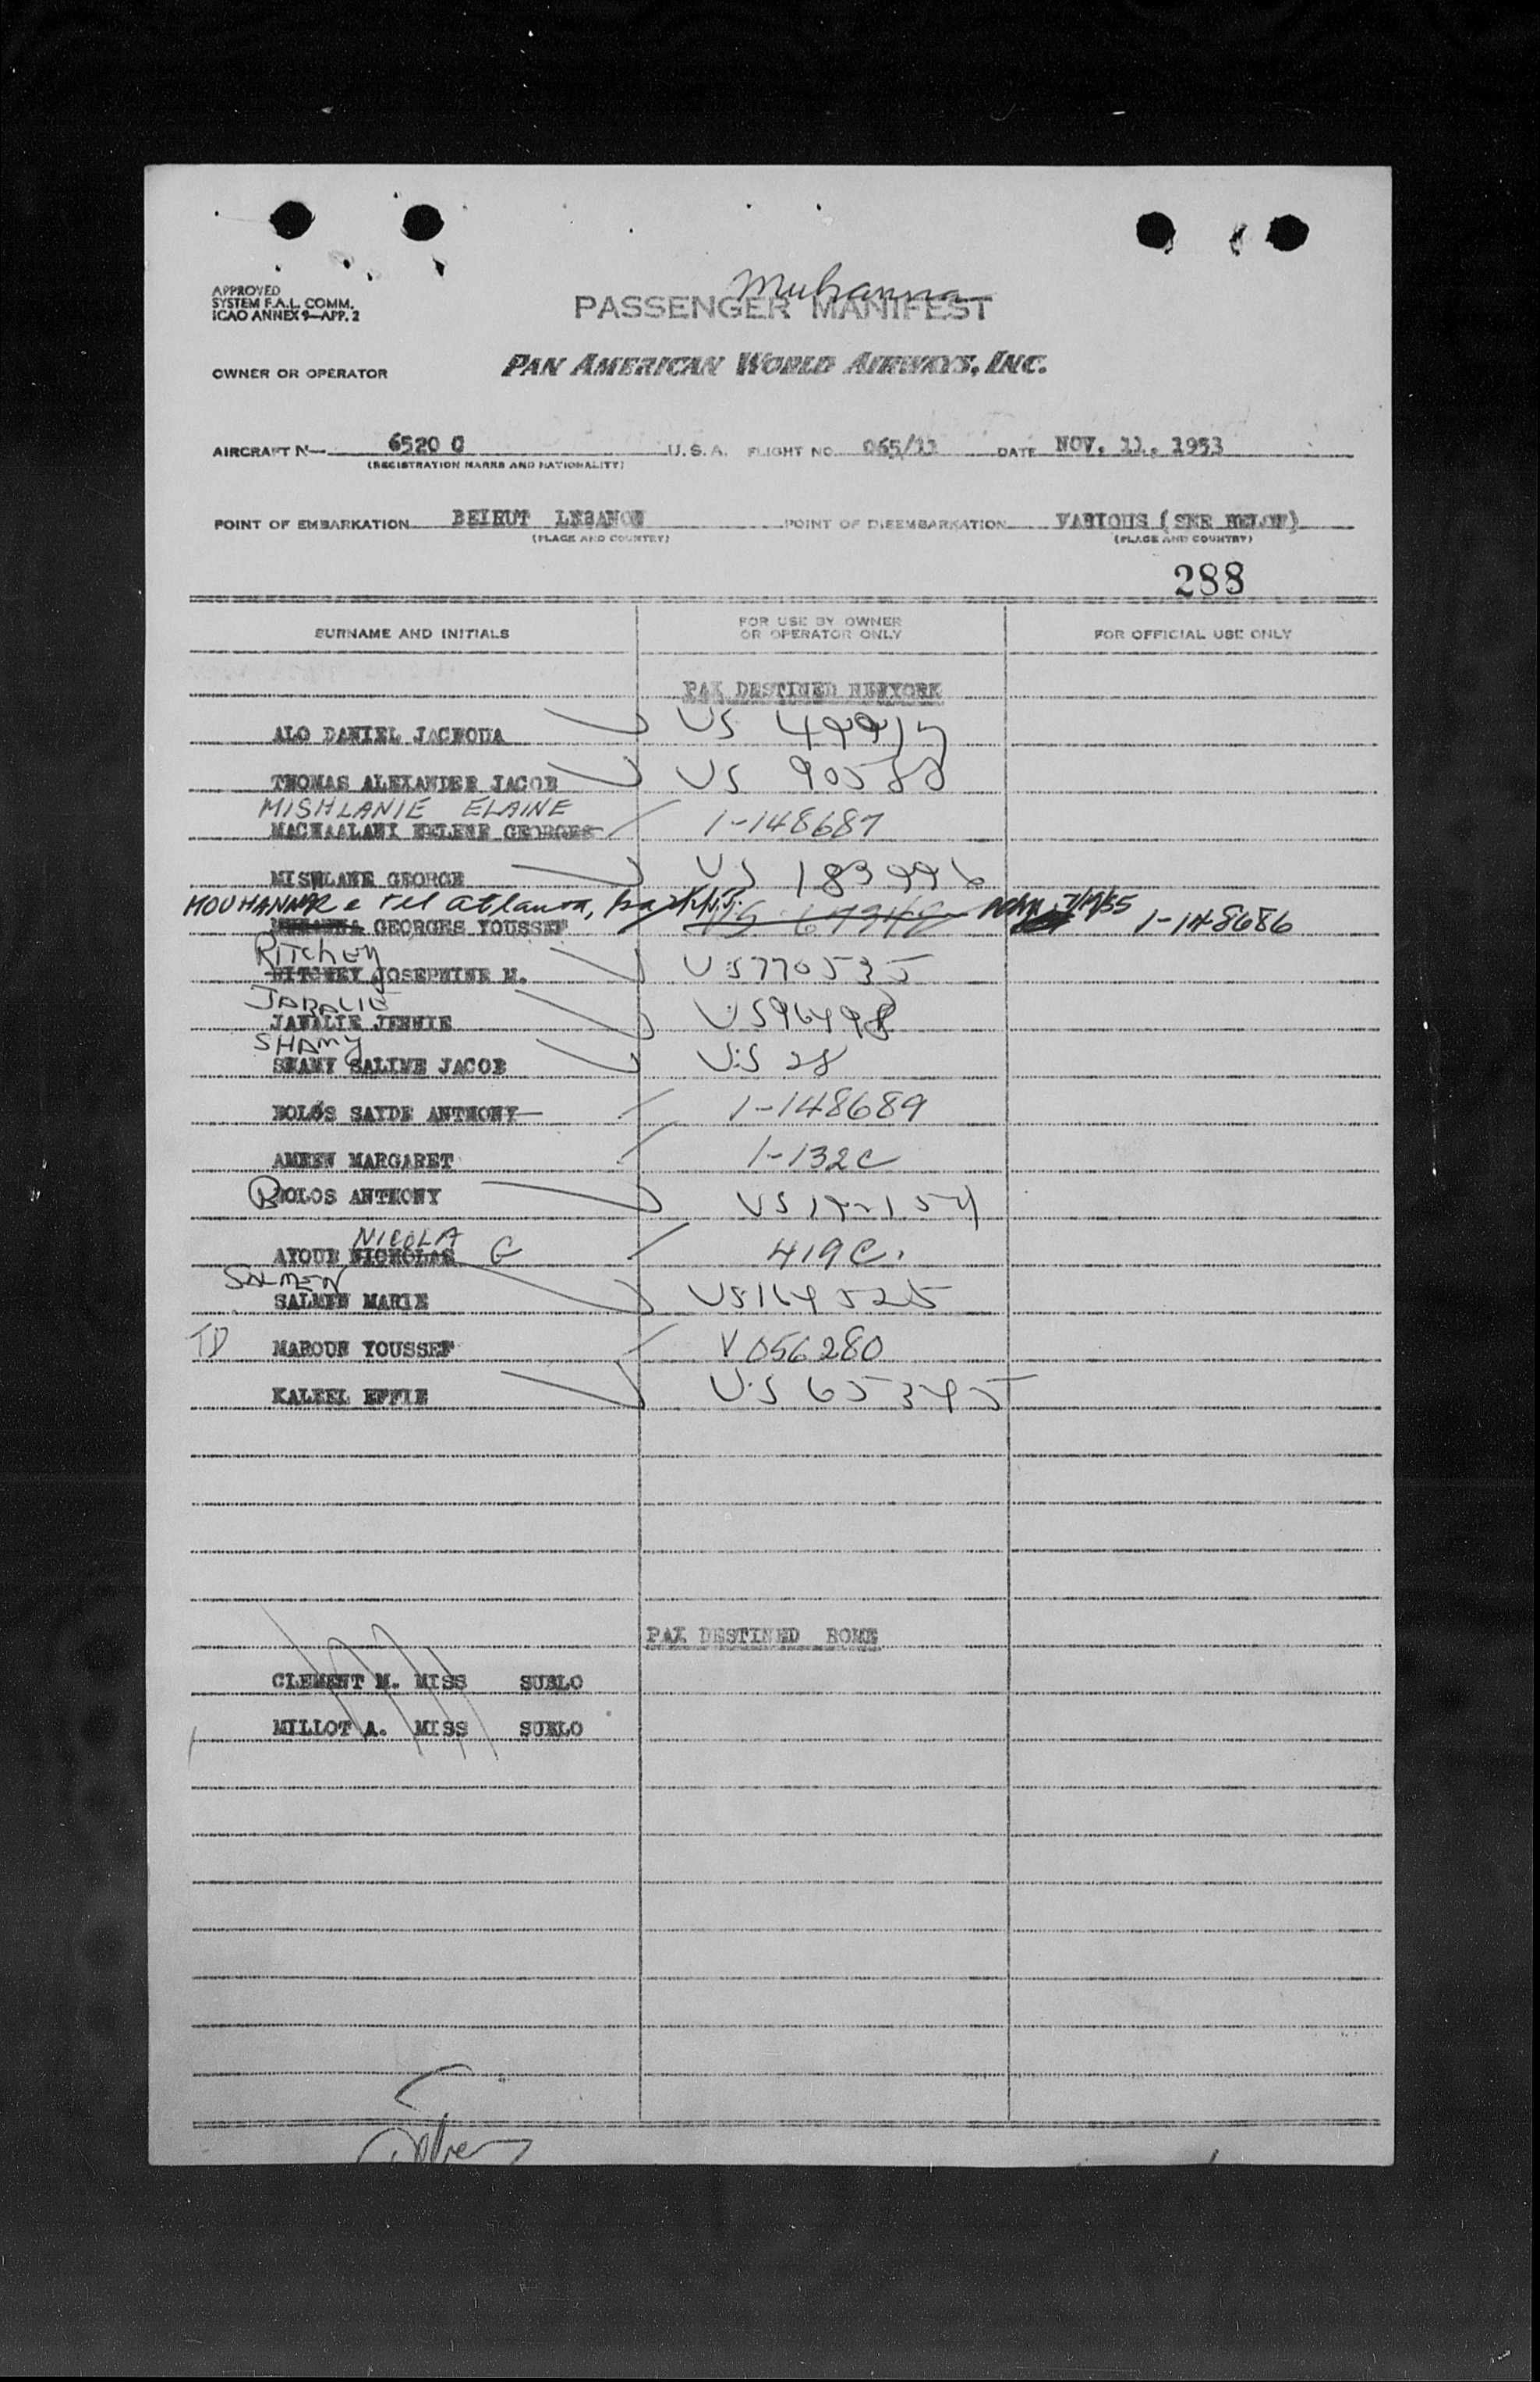 Muhanna
APPROVED
SYSTEM F.A.L. COMM.
ICAO ANNEX 9—APP. 2
PASSENGER MANIFEST
OWNER OR OPERATOR PAN AMERICAN WORLD AIRWAYS, INC.
AIRCRAFT N— 6520 C U.S.A. FLIGHT NO. 065/11 DATE NOV. 11, 1953
(REGISTRATION MARKS AND NATIONALITY)
POINT OF EMBARKATION BEIRUT LEBANON POINT OF DISEMBARKATION VARIOUS (SEE BELOW)
(PLACE AND COUNTRY) (PLACE AND COUNTRY)
288
SURNAME AND INITIALS FOR USE BY OWNER OR OPERATOR ONLY FOR OFFICIAL USE ONLY
PAX DESTINED NEWYORK
ALO DANIEL US
THOMAS ALEXANDER JACOB US 90588
MISHLANIE ELAINE
MACHAALANI HELENE GEORGES 1-148687
MISHLANE GEORGE US
MOUHANNA rel Atlanta,
GEORGES YOUSSEF 1-148686
RITCHEY
RITCHEY JOSEPHINE M. US770535
JABALIE
JABALIE JENNIE US96498
SHAMY
SHAMY SALIME JACOB US 28
BOLOS SAYDE ANTHONY 1-148689
AMEEN MARGARET 1-132C
BOLOS ANTHONY US
NICOLA
AYOUB NICHOLAS G 419C.
SALMEN
SALMEN MARIE US
TD MAROUN YOUSSEF V056280
KALEEL EFFIE US 653495
PAX DESTINED ROME
CLEMENT M. MISS SUELO
MILLOT A. MISS SUELO